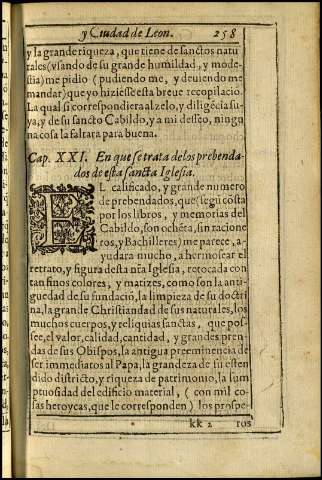 y Ciudad de Leon. 258
y la grande riqueza, que tiene de sanctos natu
rales (vsando de su grande humildad, y mode-
stia) me pidio (pudiendo me, y deuiendo me
mandar) que yo hiziesse esta breve recopilacio.
La qual si correspondiera al zelo, y diligécia su-
ya, y de su sancto Cabildo, y a mi desseo, ningu
na cosa la faltara para buena.
Cap. XXI. En que se trata de los prebenda-
dos de esta sancta Iglesia.
EL calificado, y grande numero
de prebendados, que (segũ cósta
por los libros, y memorias del
Cabildo, son ochéta, sin racione
ros, y Bachilleres) me parece, a-
yudara mucho, a hermosear el
retrato, y figura desta nřa Iglesia, retocada con
tan finos colores, y matizes, como son la anti-
guedad de su fundació, la limpieza de su doctri
na, la grande Christiandad de sus naturales, los
muchos cuerpos, y reliquias sanctas, que pos-
see, el valor, calidad, cantidad, y grandes pren
das de sus Obispos, la antigua preeminencia de
ser immediatos al Papa, la grandeza de su esten
dido districto, y riqueza de patrimonio, la sum
ptuosidad del edificio material, (con mil co-
sas heroycas, que le corresponden) los prospe-
kk 2 ros